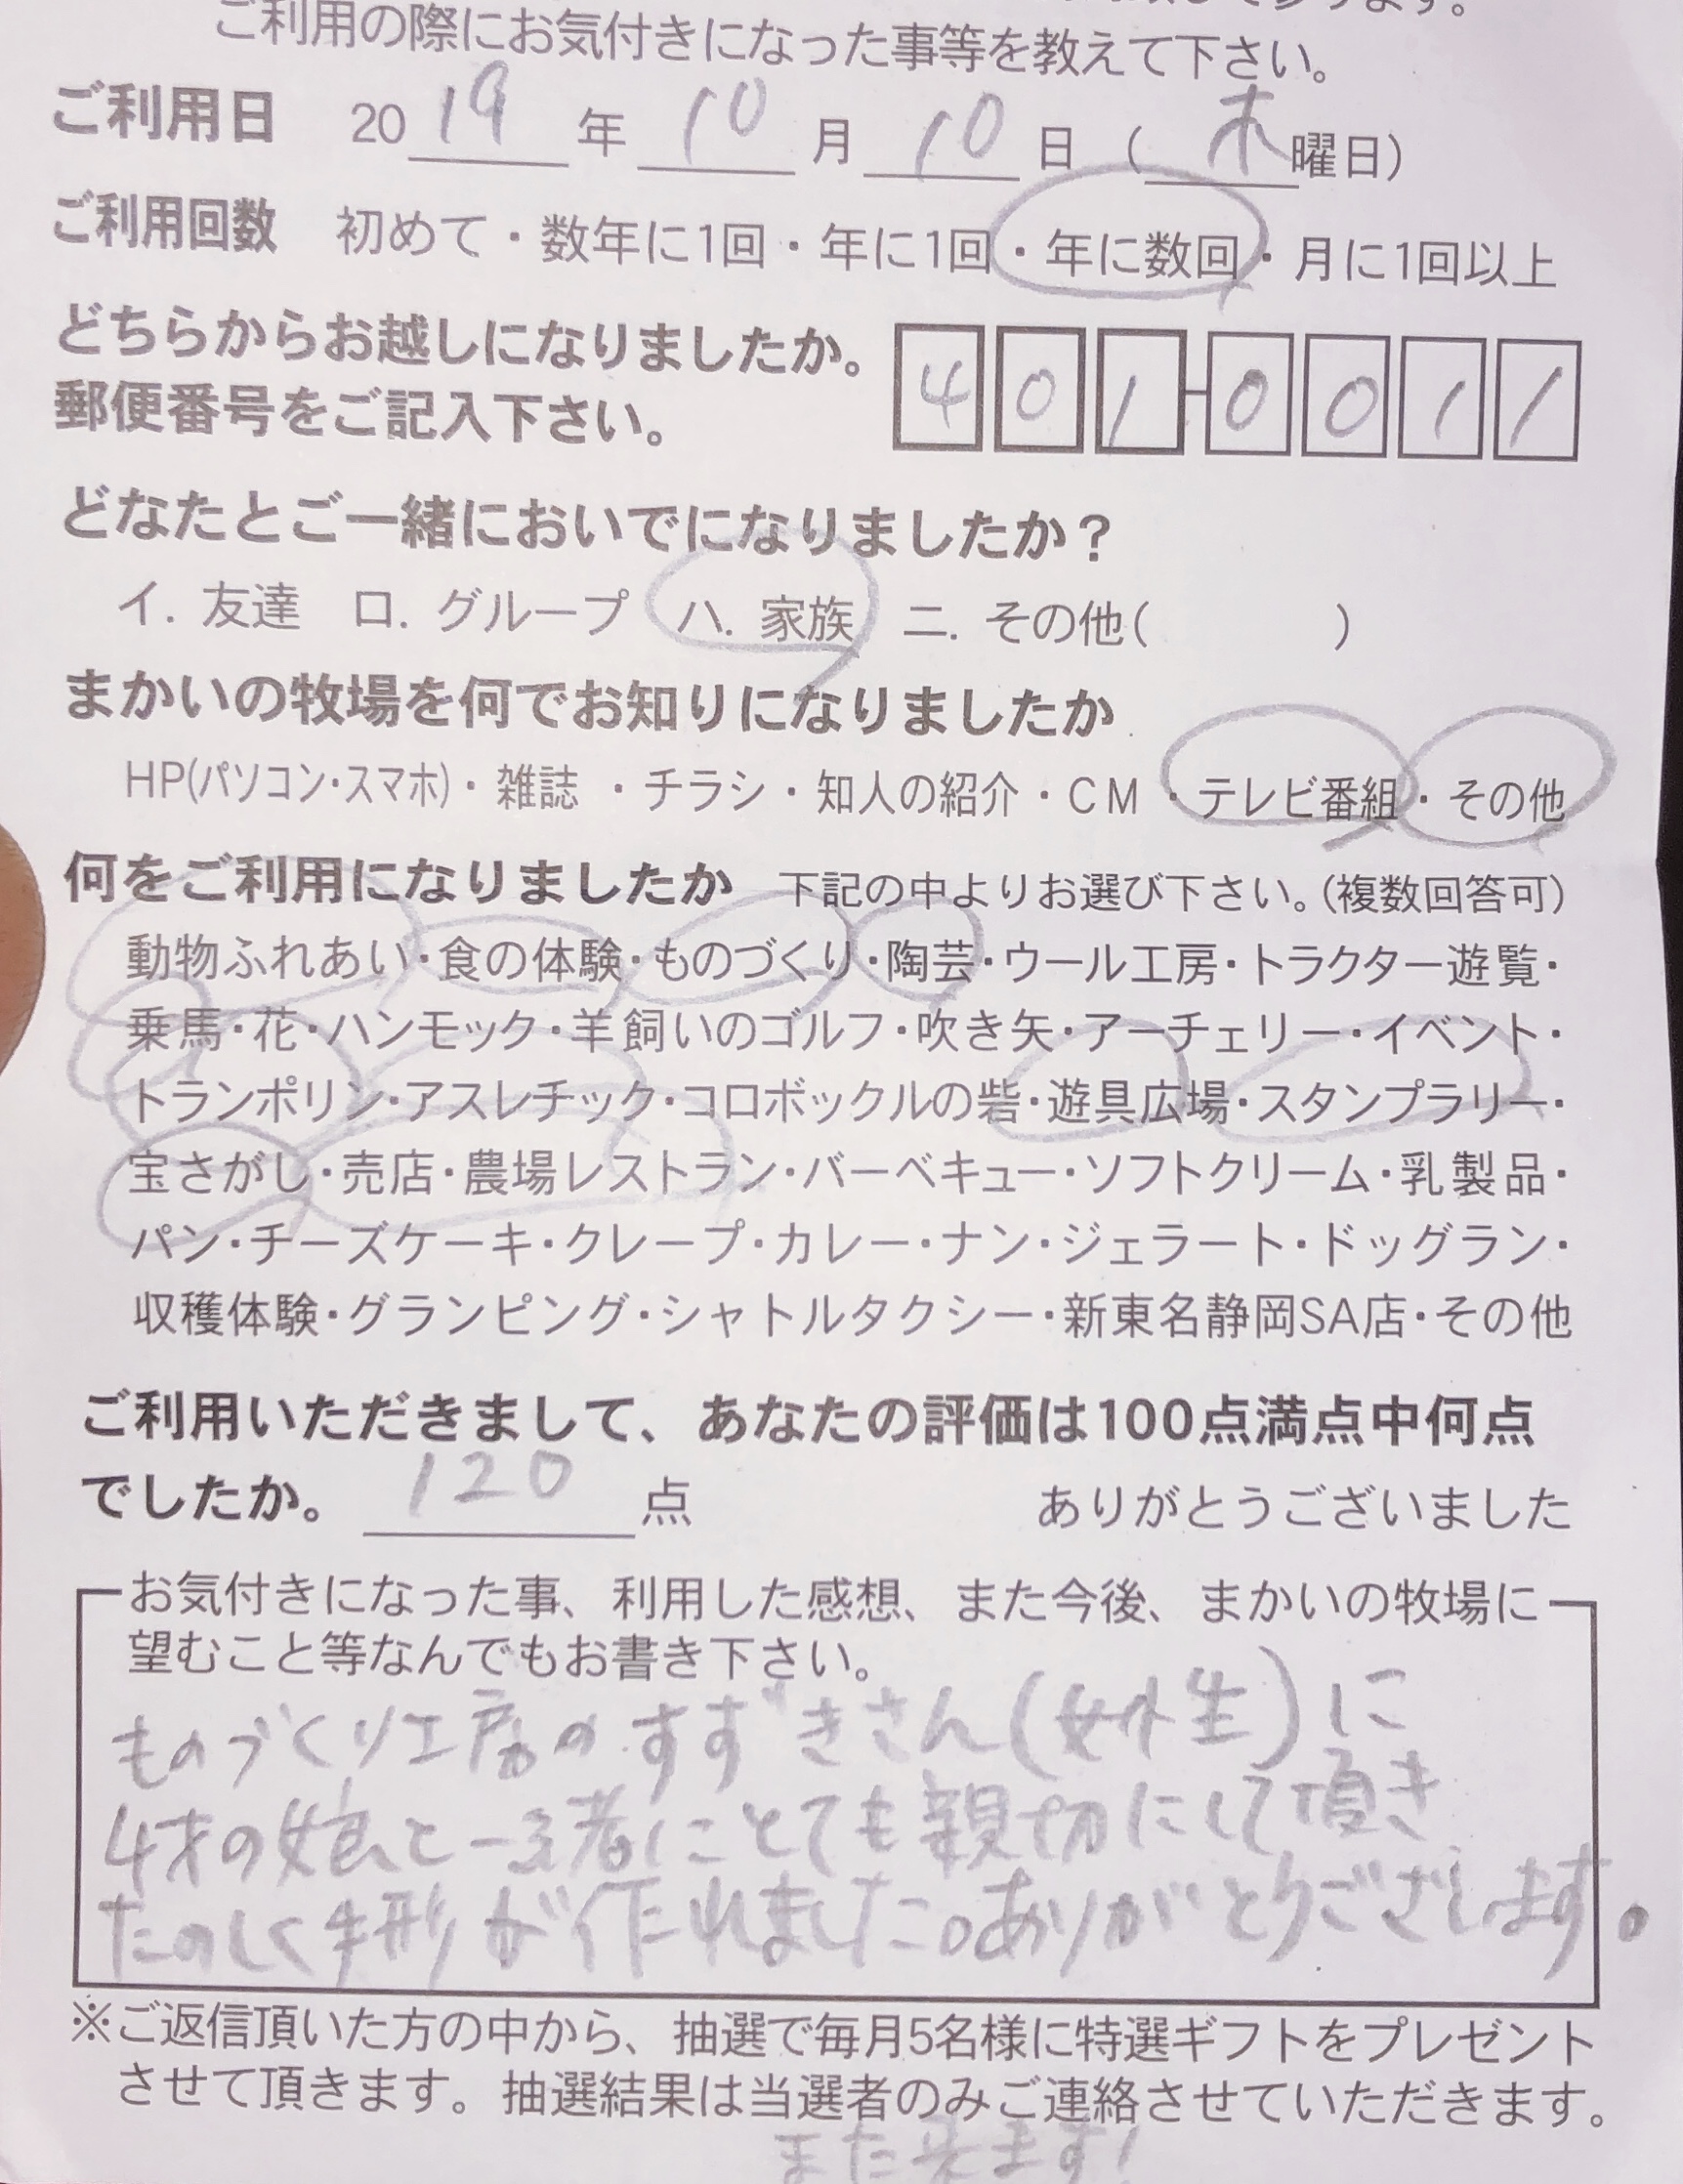 ご利用の際にお気付きになった事等を教えて下さい。
ご利用日 2019年10月10日(木曜日)
ご利用回数 初めて・数年に1回・年に1回・年に数回・月に1回以上
どちらからお越しになりましたか。
郵便番号をご記入下さい。 401-0011
どなたとご一緒においでになりましたか？
イ. 友達 ロ. グループ ハ. 家族 ニ. その他( )
まかいの牧場を何でお知りになりましたか
HP(パソコン・スマホ)・雑誌・チラシ・知人の紹介・CM・テレビ番組・その他
何をご利用になりましたか 下記の中よりお選び下さい。(複数回答可)
動物ふれあい・食の体験・ものづくり・陶芸・ウール工房・トラクター遊覧・
乗馬・花・ハンモック・羊飼いのゴルフ・吹き矢・アーチェリー・イベント・
トランポリン・アスレチック・コロボックルの砦・遊具広場・スタンプラリー・
宝さがし・売店・農場レストラン・バーベキュー・ソフトクリーム・乳製品・
パン・チーズケーキ・クレープ・カレー・ナン・ジェラート・ドッグラン・
収穫体験・グランピング・シャトルタクシー・新東名静岡SA店・その他
ご利用いただきまして、あなたの評価は100点満点中何点
でしたか。 120点 ありがとうございました
お気付きになった事、利用した感想、また今後、まかいの牧場に
望むこと等なんでもお書き下さい。
ものづくり工房のすずきさん(女性)に
4才の娘と一緒にとても親切にして頂き
たのしく手形が作れました。ありがとうございます。
※ご返信頂いた方の中から、抽選で毎月5名様に特選ギフトをプレゼント
させて頂きます。抽選結果は当選者のみご連絡させていただきます。
また来ます!